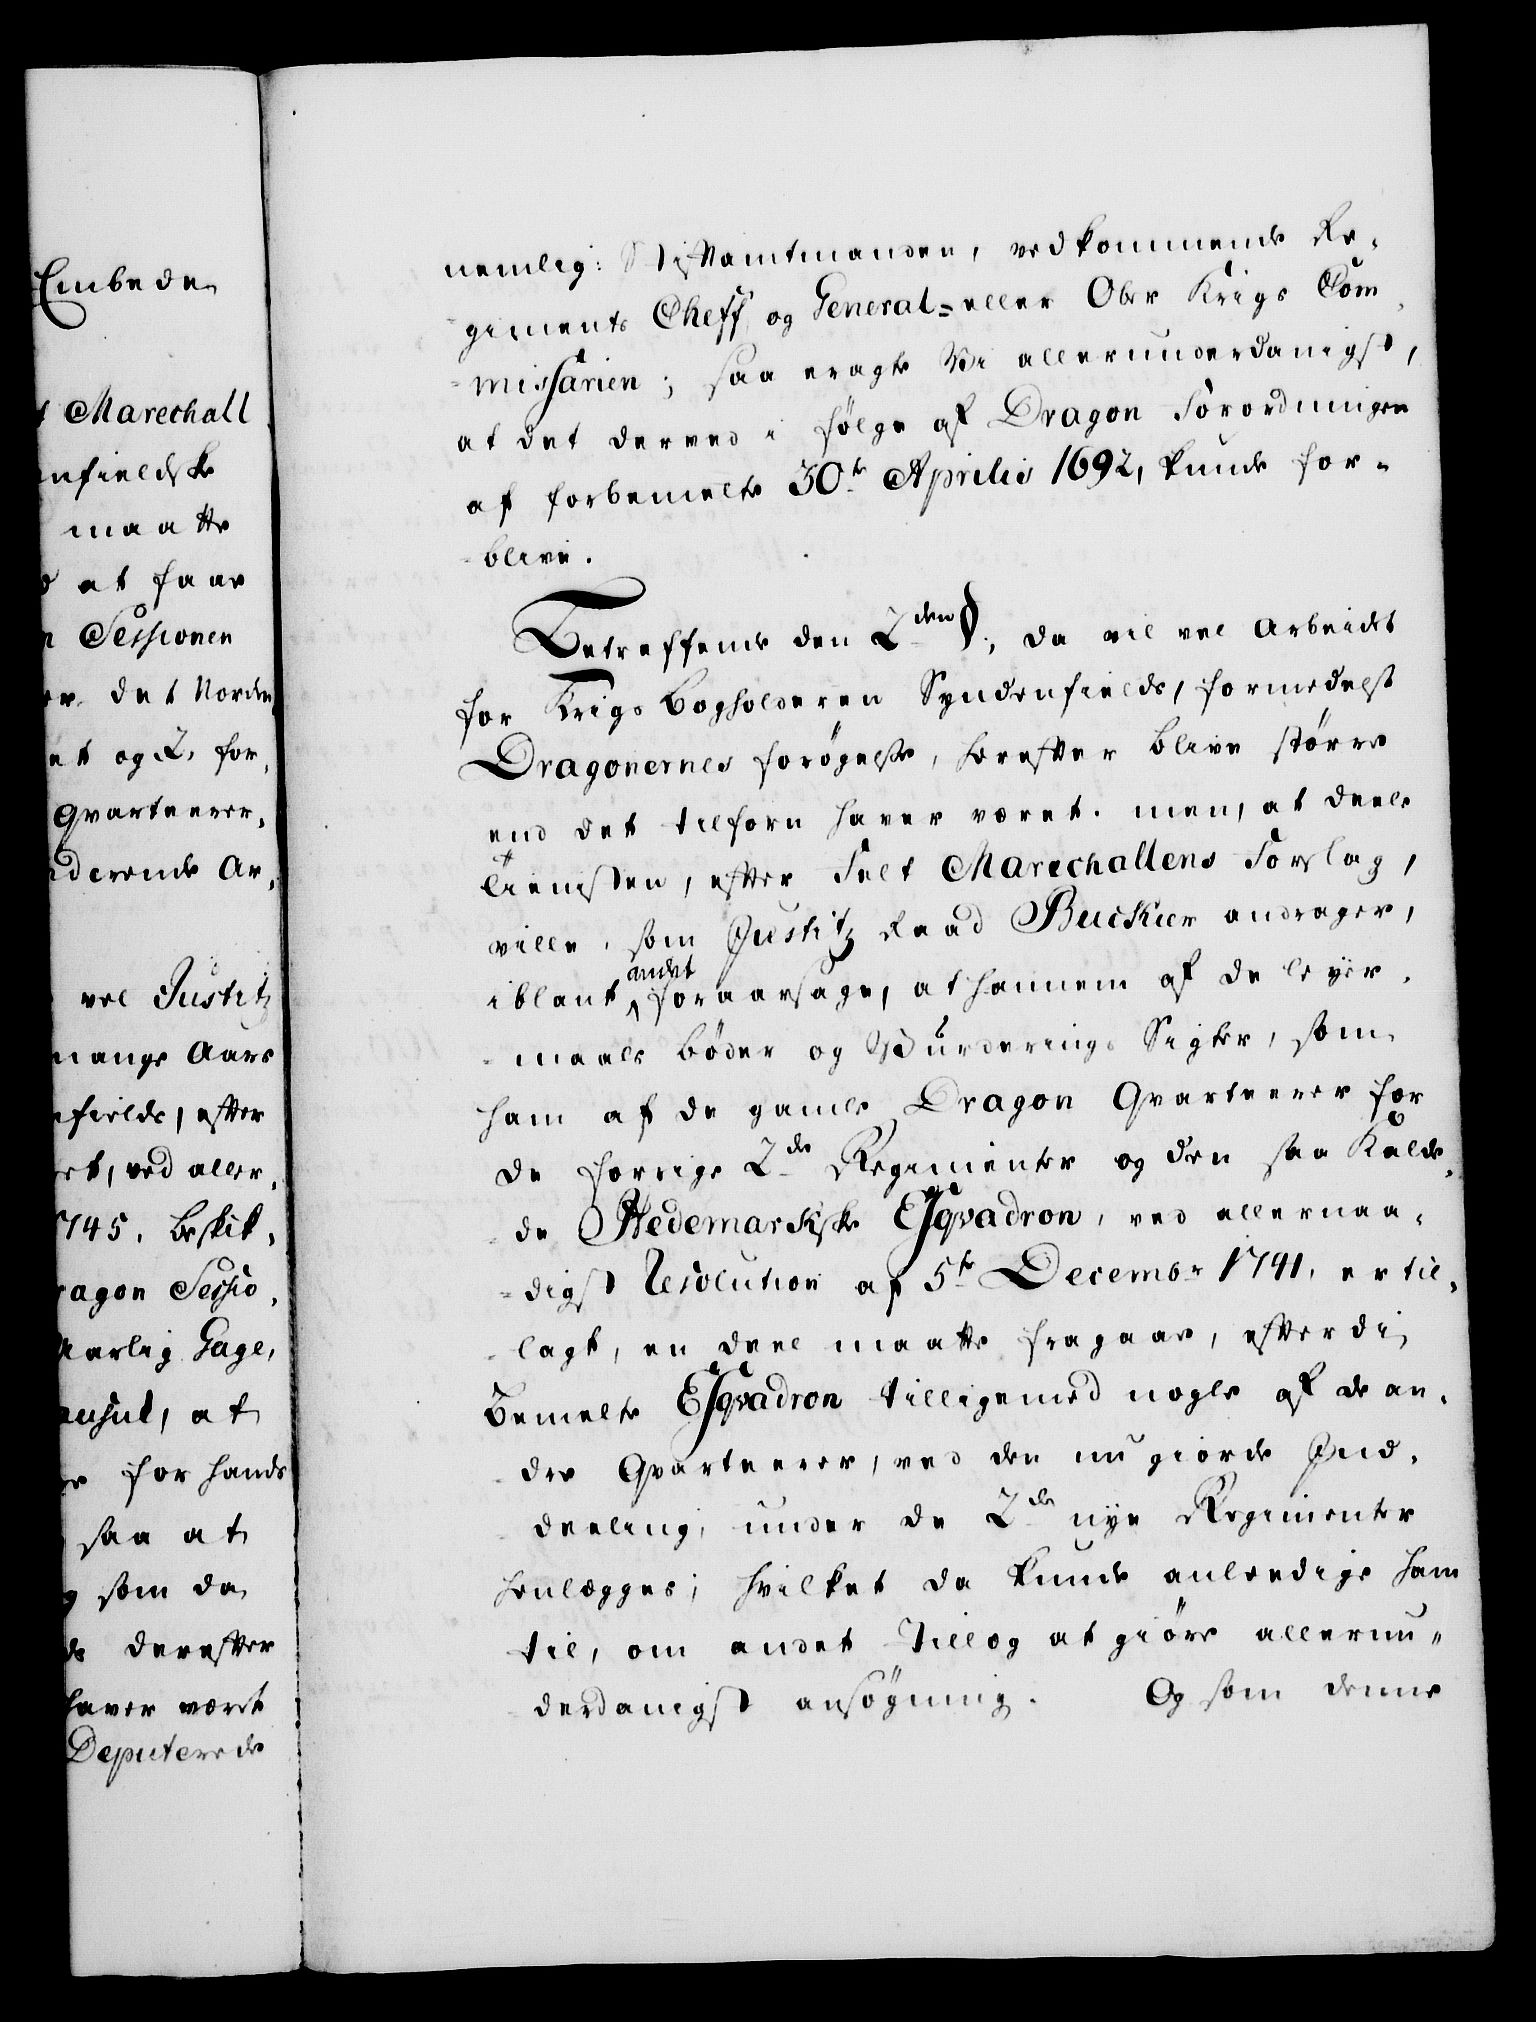 Embede
Marechall
nfieldske
maatte
at faae
Sessionen
er det Norden
et og 2, for,
Qvarteerer,
derende Ar,
vel Justitz
mange Aars
fields, efter
ved aller,
1745. beskik,
ragon Sessio,
Aarlig Gage,
at
for hands
saa at
som da
derefter
haver været
Deputerede
nemlig: Stiftamtmanden, vedkommende Re,
giments Cheff og General= eller Ober Krigs Com,
missarien; saa eragte Vi allerunderdanigst,
at det derved i følge af Dragon Forordningen
af forbemelte 30te Aprilis 1692, kunde for=
blive.
Betreffende den 2den §, da vil vel Arbeidet
for Krigs bogholderen Syndenfields, formedelst
Dragonernes forøgelse, herefter blive større
end det tilforn haver været. men, at deele
tienisten, efter Felt Marechallens Forslag,
ville, som Justitz Raad Buckier andrager,
iblant andet foraarsage, at hannem af de leyer,
maals bøder og Vurderings Sigter, som
ham af de gamle Dragon Qvarteerer for
de forrige 2de Regimenter og den saa Kald,
de Hedemarkske Esqvadron, ved allernaa,
digst Resolution af 5te Decembr 1741, er til,
lagt, en deel maatte fragaae, efterdi
bemelte Esqvadron tilligemed nogle af de an,
dre Qvarteerer, ved den nu giorde Ind,
deeling, under de 2de nye Regimenter
henlægges; hvilket da kunde anledige ham
til, om andet Tillæg at giøre allerun=
derdanigst ansøgning. Og som denne